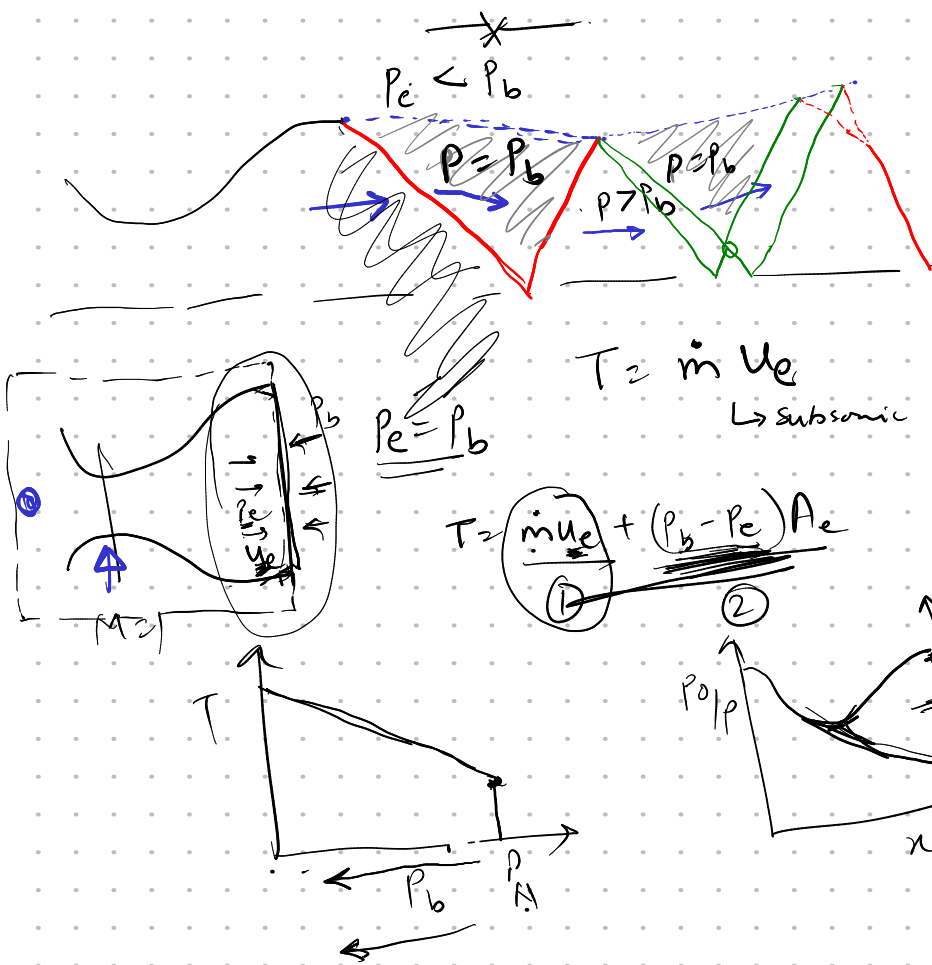 Pe < Pb
P = Pb
P = Pb
P > Pb
T = ṁ Ue
↳ subsonic
Pb
Pe
Ue
Pe = Pb
T = ṁUe + (Pb - Pe) Ae
① ②
M = 1
T
Pb
P0/P
x